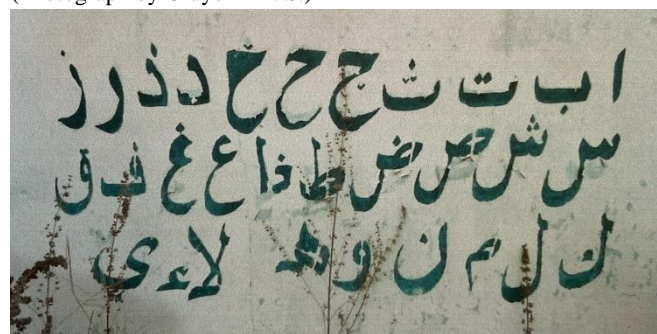 ا ب ت ث ج ح خ د ذ ر ز
س ش ص ض ط ظ ع غ ف ق
ك ل م ن و ه لا ء ى